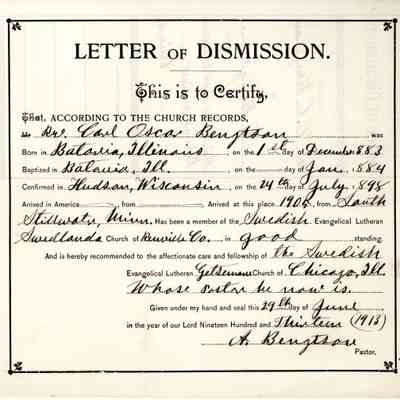 LETTER OF DISMISSION.
This is to Certify,
That, ACCORDING TO THE CHURCH RECORDS,
Rev. Carl Oscar Bengtson was
Born in Batavia, Illinois, on the 1st day of December 1883
Baptized in Batavia, Ill. on the day of Jan. 1884
Confirmed in Hudson, Wisconsin, on the 24th day of July, 1898
Arrived in America, from Arrived at this place 1905, from South
Stillwater, Minn. Has been a member of the Swedish Evangelical Lutheran
Swedlanda Church of Renville Co. in good standing.
And is hereby recommended to the affectionate care and fellowship of the Swedish
Evangelical Lutheran Getsemane Church of Chicago, Ill.
Whose Pastor he now is.
Given under my hand and seal this 29th day of June
in the year of our Lord Nineteen Hundred and Thirteen (1913)
A. Bengtson
Pastor.